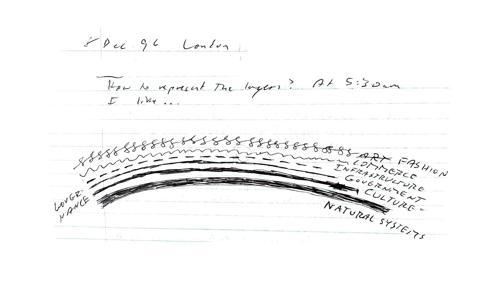 8 Dec 96 London
How to represent the layers? At 5:30am
I like...
ART FASHION
COMMERCE
INFRASTRUCTURE
GOVERNMENT
CULTURE
NATURAL SYSTEMS
GOVER-
NANCE